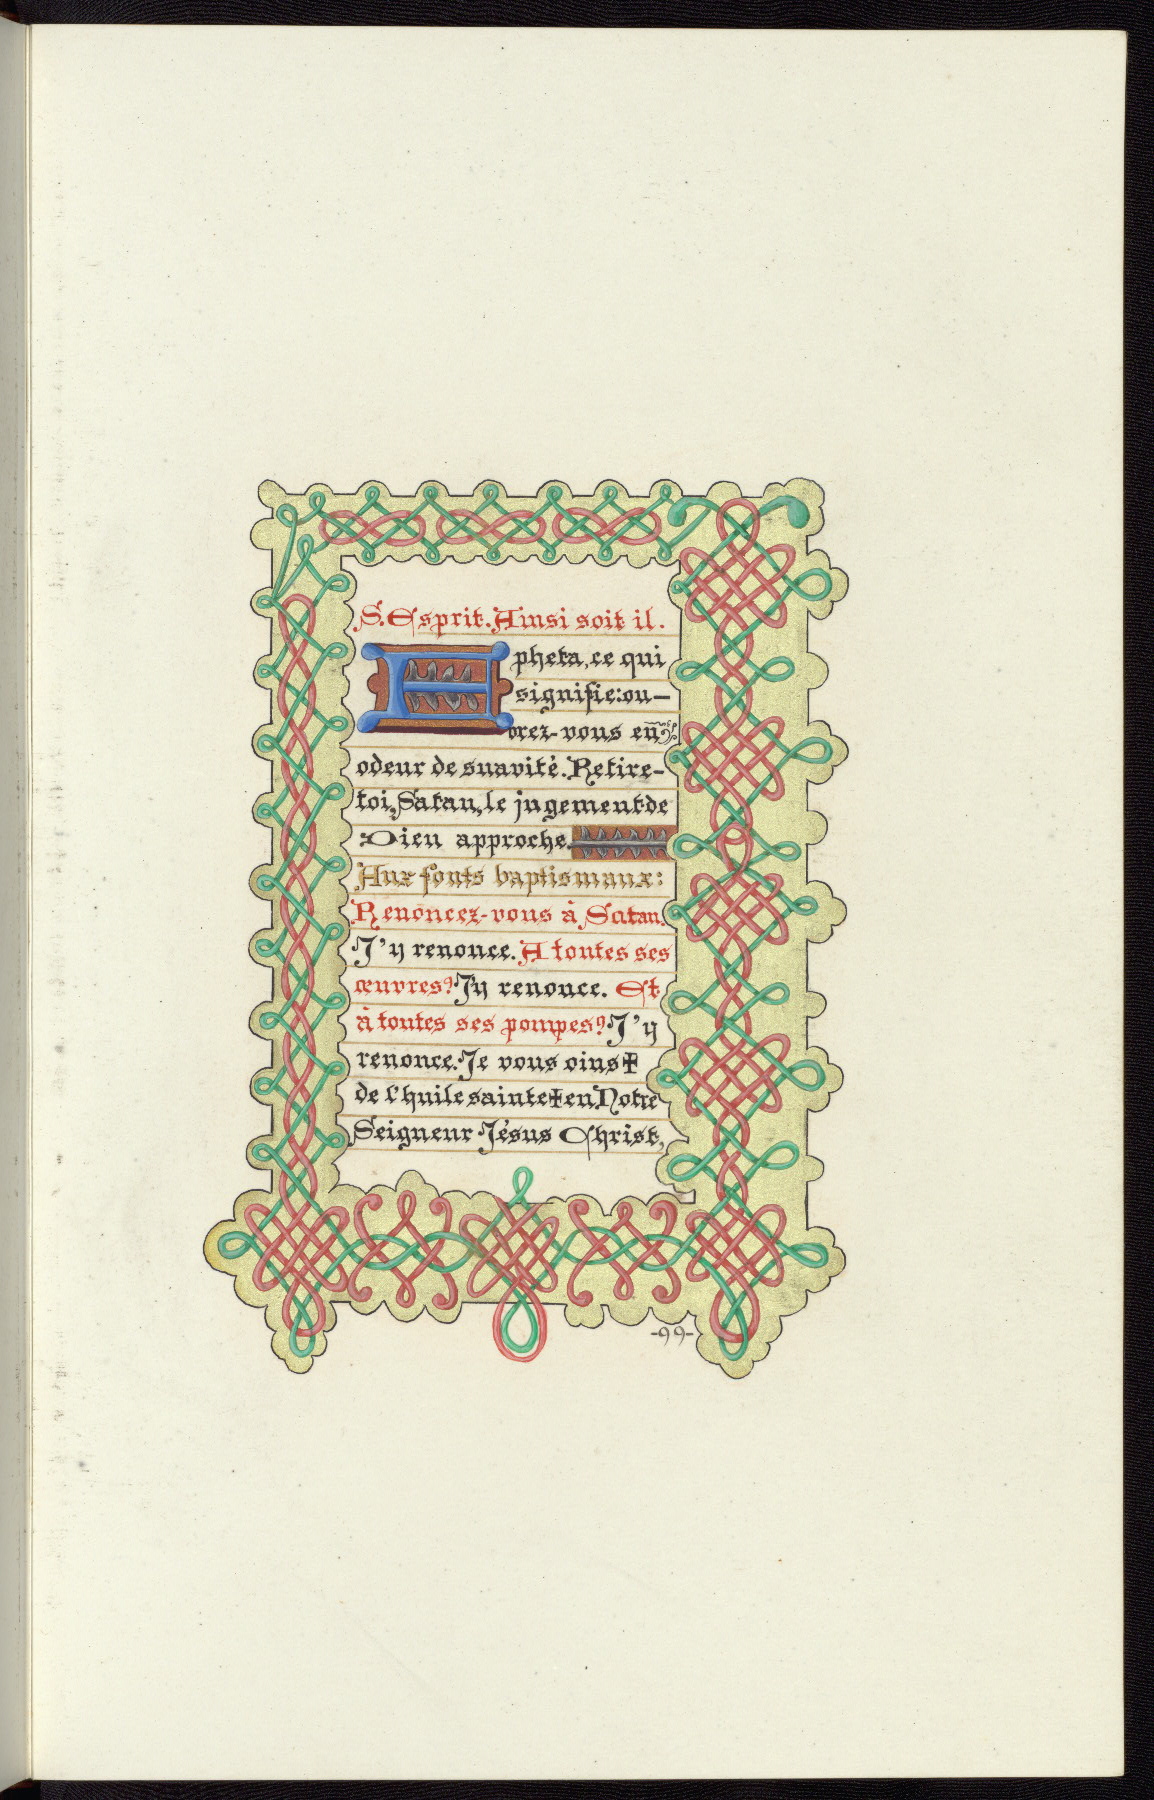 S. Esprit. Ainsi soit il.
Epheta, ce qui
signifie: ou-
vrez-vous en
odeur de suavité. Retire-
toi, Satan, le jugement de
Dieu approche.
Aux fonts baptismaux:
Renoncez-vous à Satan.
J'y renonce. A toutes ses
œuvres? J'y renonce. Et
à toutes ses pompes? J'y
renonce. Je vous oins ✝
de l'huile sainte ✝ en Notre
Seigneur Jésus Christ,
-99-